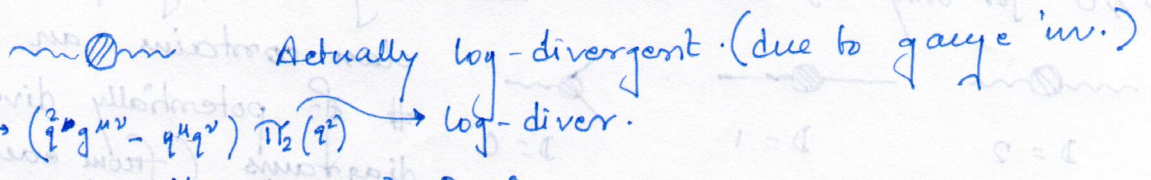 Actually log-divergent. (due to gauge inv.)
(q² g^{μν} - q^μ q^ν) Π₂(q²) → log-diver.